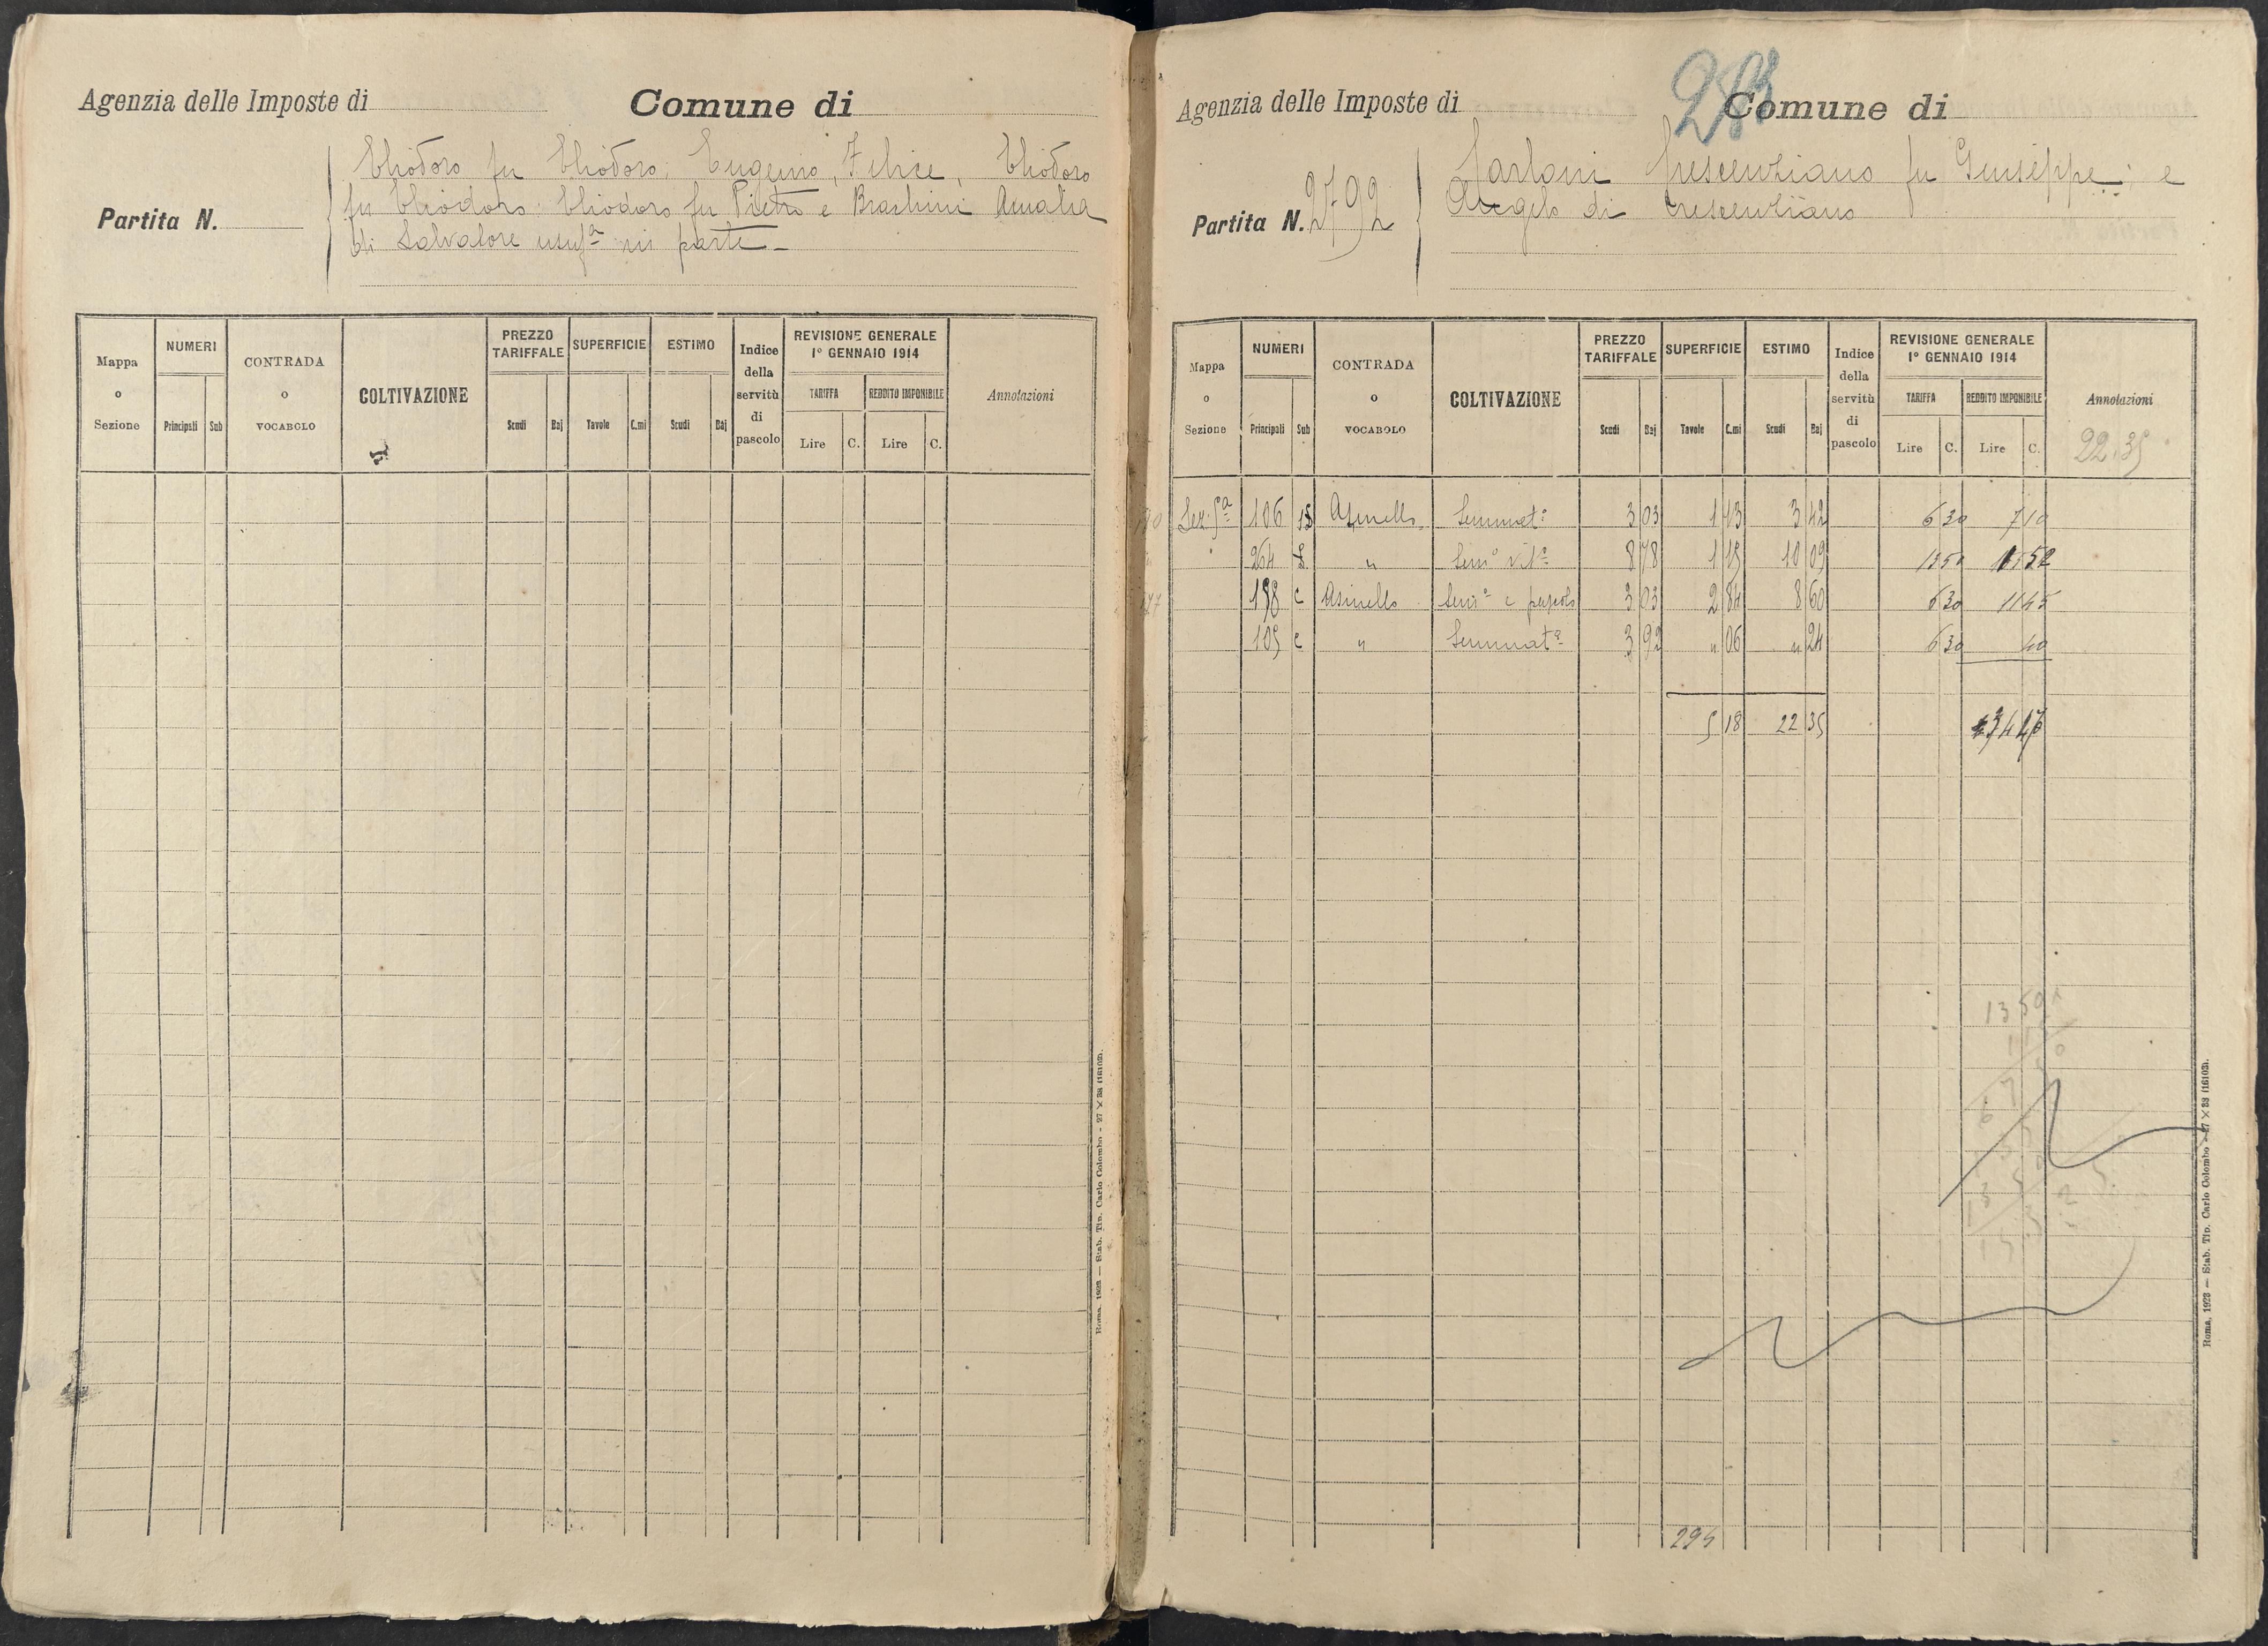 Agenzia delle Imposte di Comune di
Eliodoro fu Eliodoro, Eugenio, Felice, Eliodoro
Partita N. fu Eliodoro. Eliodoro fu Pietro e Brachini Amalia
di Salvatore usuf.ª in parte
Mappa o Sezione NUMERI Principali Sub CONTRADA o VOCABOLO COLTIVAZIONE PREZZO TARIFFALE Scudi Baj SUPERFICIE Tavole C.mi ESTIMO Scudi Baj Indice della servitù di pascolo REVISIONE GENERALE 1º GENNAIO 1914 TARIFFA Lire C. REDDITO IMPONIBILE Lire C. Annotazioni
Roma, 1923 — Stab. Tip. Carlo Colombo - 27 × 38 (16103).
Agenzia delle Imposte di Comune di
Crescenziano fu Giuseppe; e
Partita N. 2792 Angelo di Crescenziano
Mappa o Sezione NUMERI Principali Sub CONTRADA o VOCABOLO COLTIVAZIONE PREZZO TARIFFALE Scudi Baj SUPERFICIE Tavole C.mi ESTIMO Scudi Baj Indice della servitù di pascolo REVISIONE GENERALE 1º GENNAIO 1914 TARIFFA Lire C. REDDITO IMPONIBILE Lire C. Annotazioni
22.35
Sez. 5ª 106 Asinello Seminatº 3 03 1 13 3 42 6 30 7 10
264 " Semº vitº 8 78 1 15 10 09 13 50 15 52
198 c Asinello Semº e pascolo 3 03 2 84 8 60 6 30 11 45
105 c " Seminatº 3 92 " 06 " 24 6 30 40
5 18 22 35 34 47
13 50
295
Roma, 1923 — Stab. Tip. Carlo Colombo - 27 × 38 (16103).